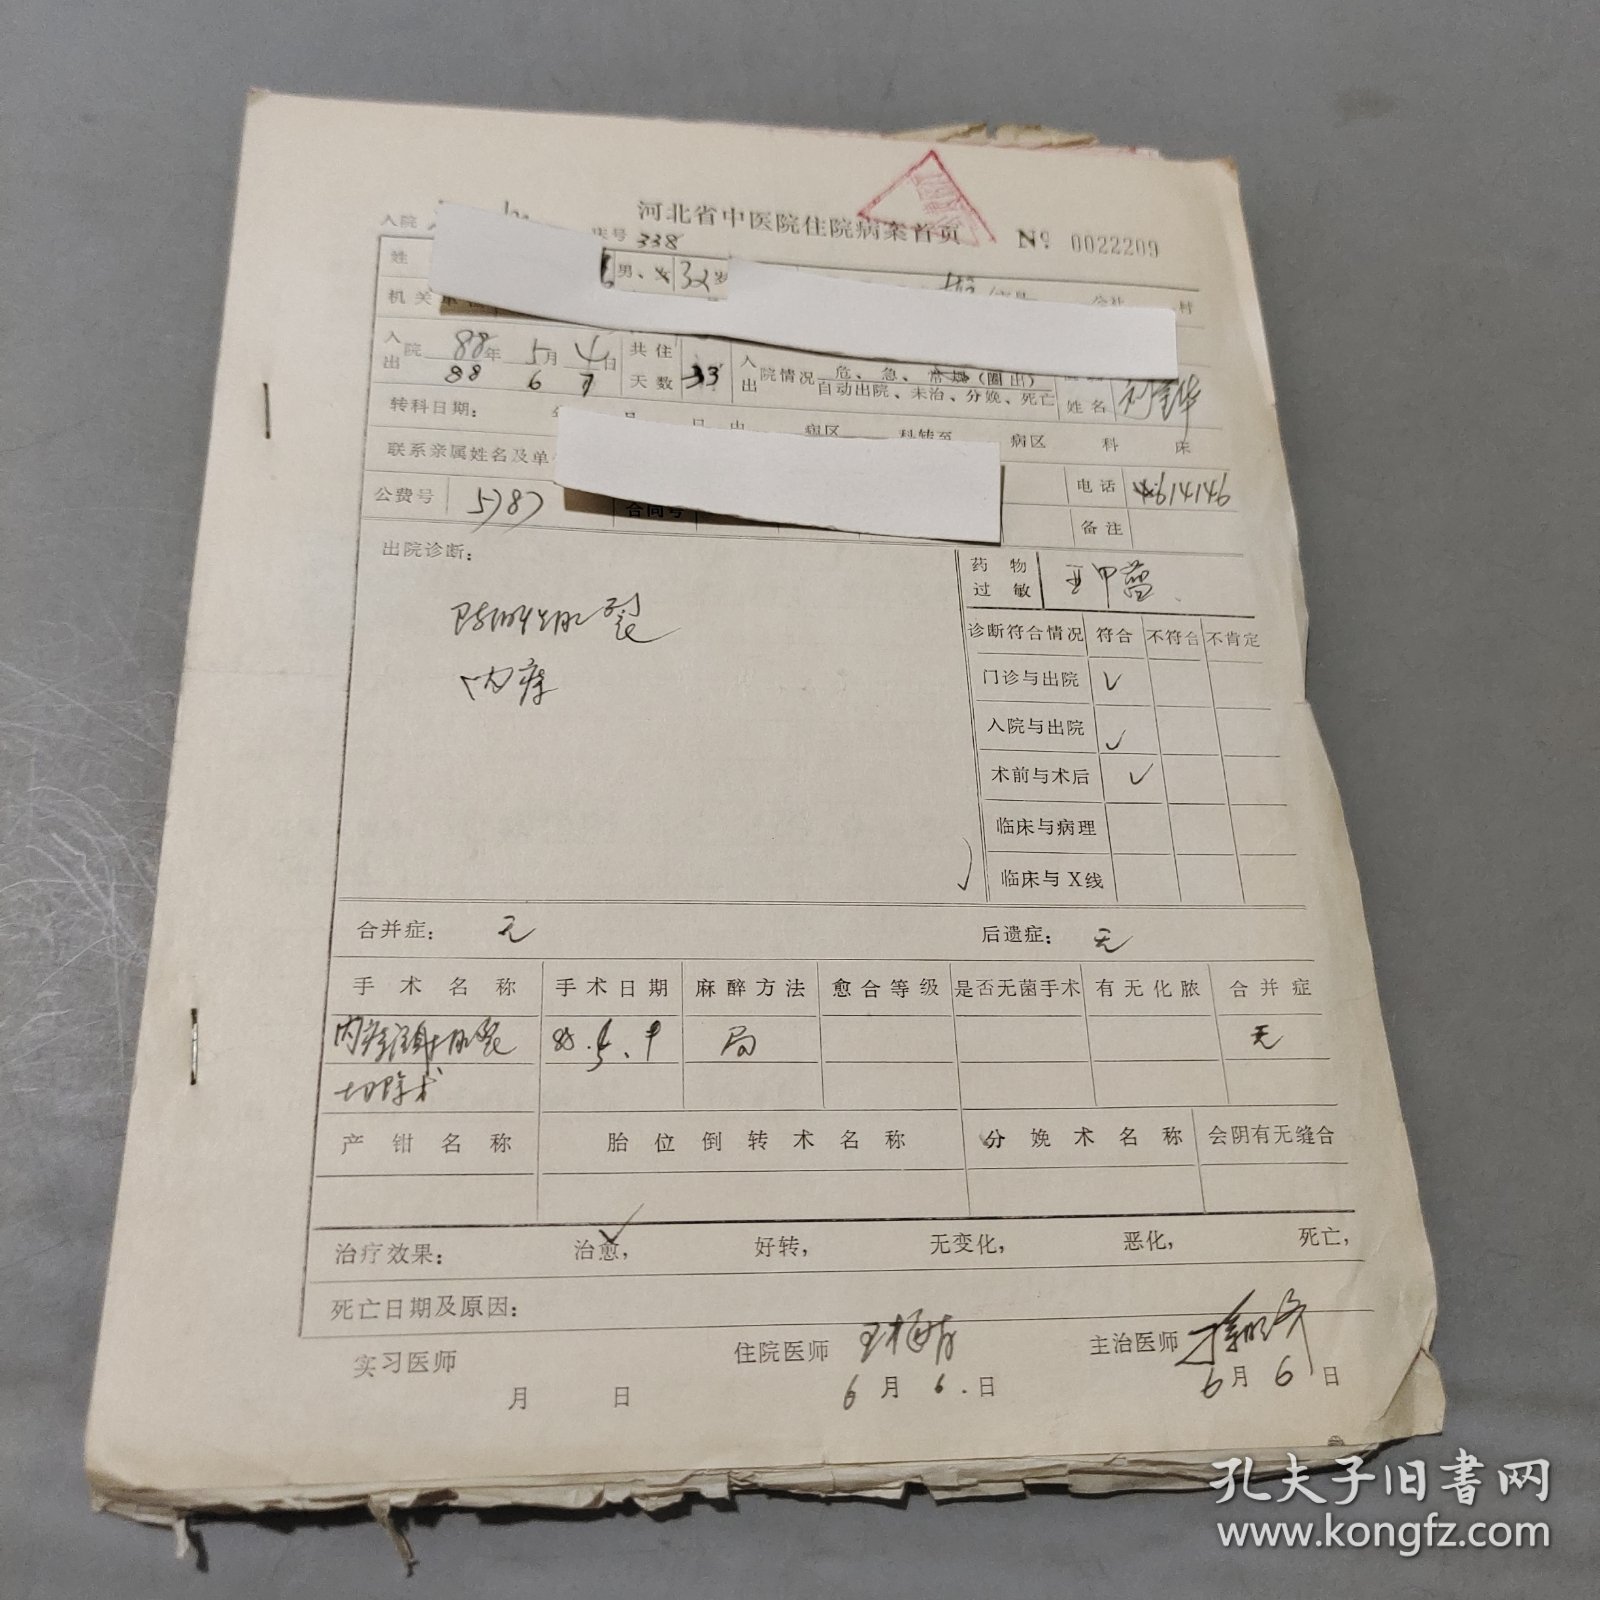 河北省中医院住院病案首页 No 0022209
入院 床号 338
姓 男、女 32岁
机关 村
入院 88年 5月 4日 共住天数 33 入院情况 危、急、常规(圈出) 姓名
出 88 6 7 出 自动出院、未治、分娩、死亡
转科日期: 年 月 日 由 病区 科转至 病区 科 床
联系亲属姓名及单 电话 614146
公费号 5787 合同号 备注
出院诊断: 药物过敏
陈旧性肛裂
内痔
诊断符合情况 符合 不符合 不肯定
门诊与出院 ✓
入院与出院 ✓
术前与术后 ✓
临床与病理
临床与X线
合并症: 无 后遗症: 无
手术名称 手术日期 麻醉方法 愈合等级 是否无菌手术 有无化脓 合并症
内痔注射肛裂 88.5.9 局 无
切除术
产钳名称 胎位倒转术名称 分娩术名称 会阴有无缝合
治疗效果: 治愈, ✓ 好转, 无变化, 恶化, 死亡,
死亡日期及原因:
实习医师 住院医师 主治医师
月 日 6月6.日 6月6日
孔夫子旧书网
www.kongfz.com